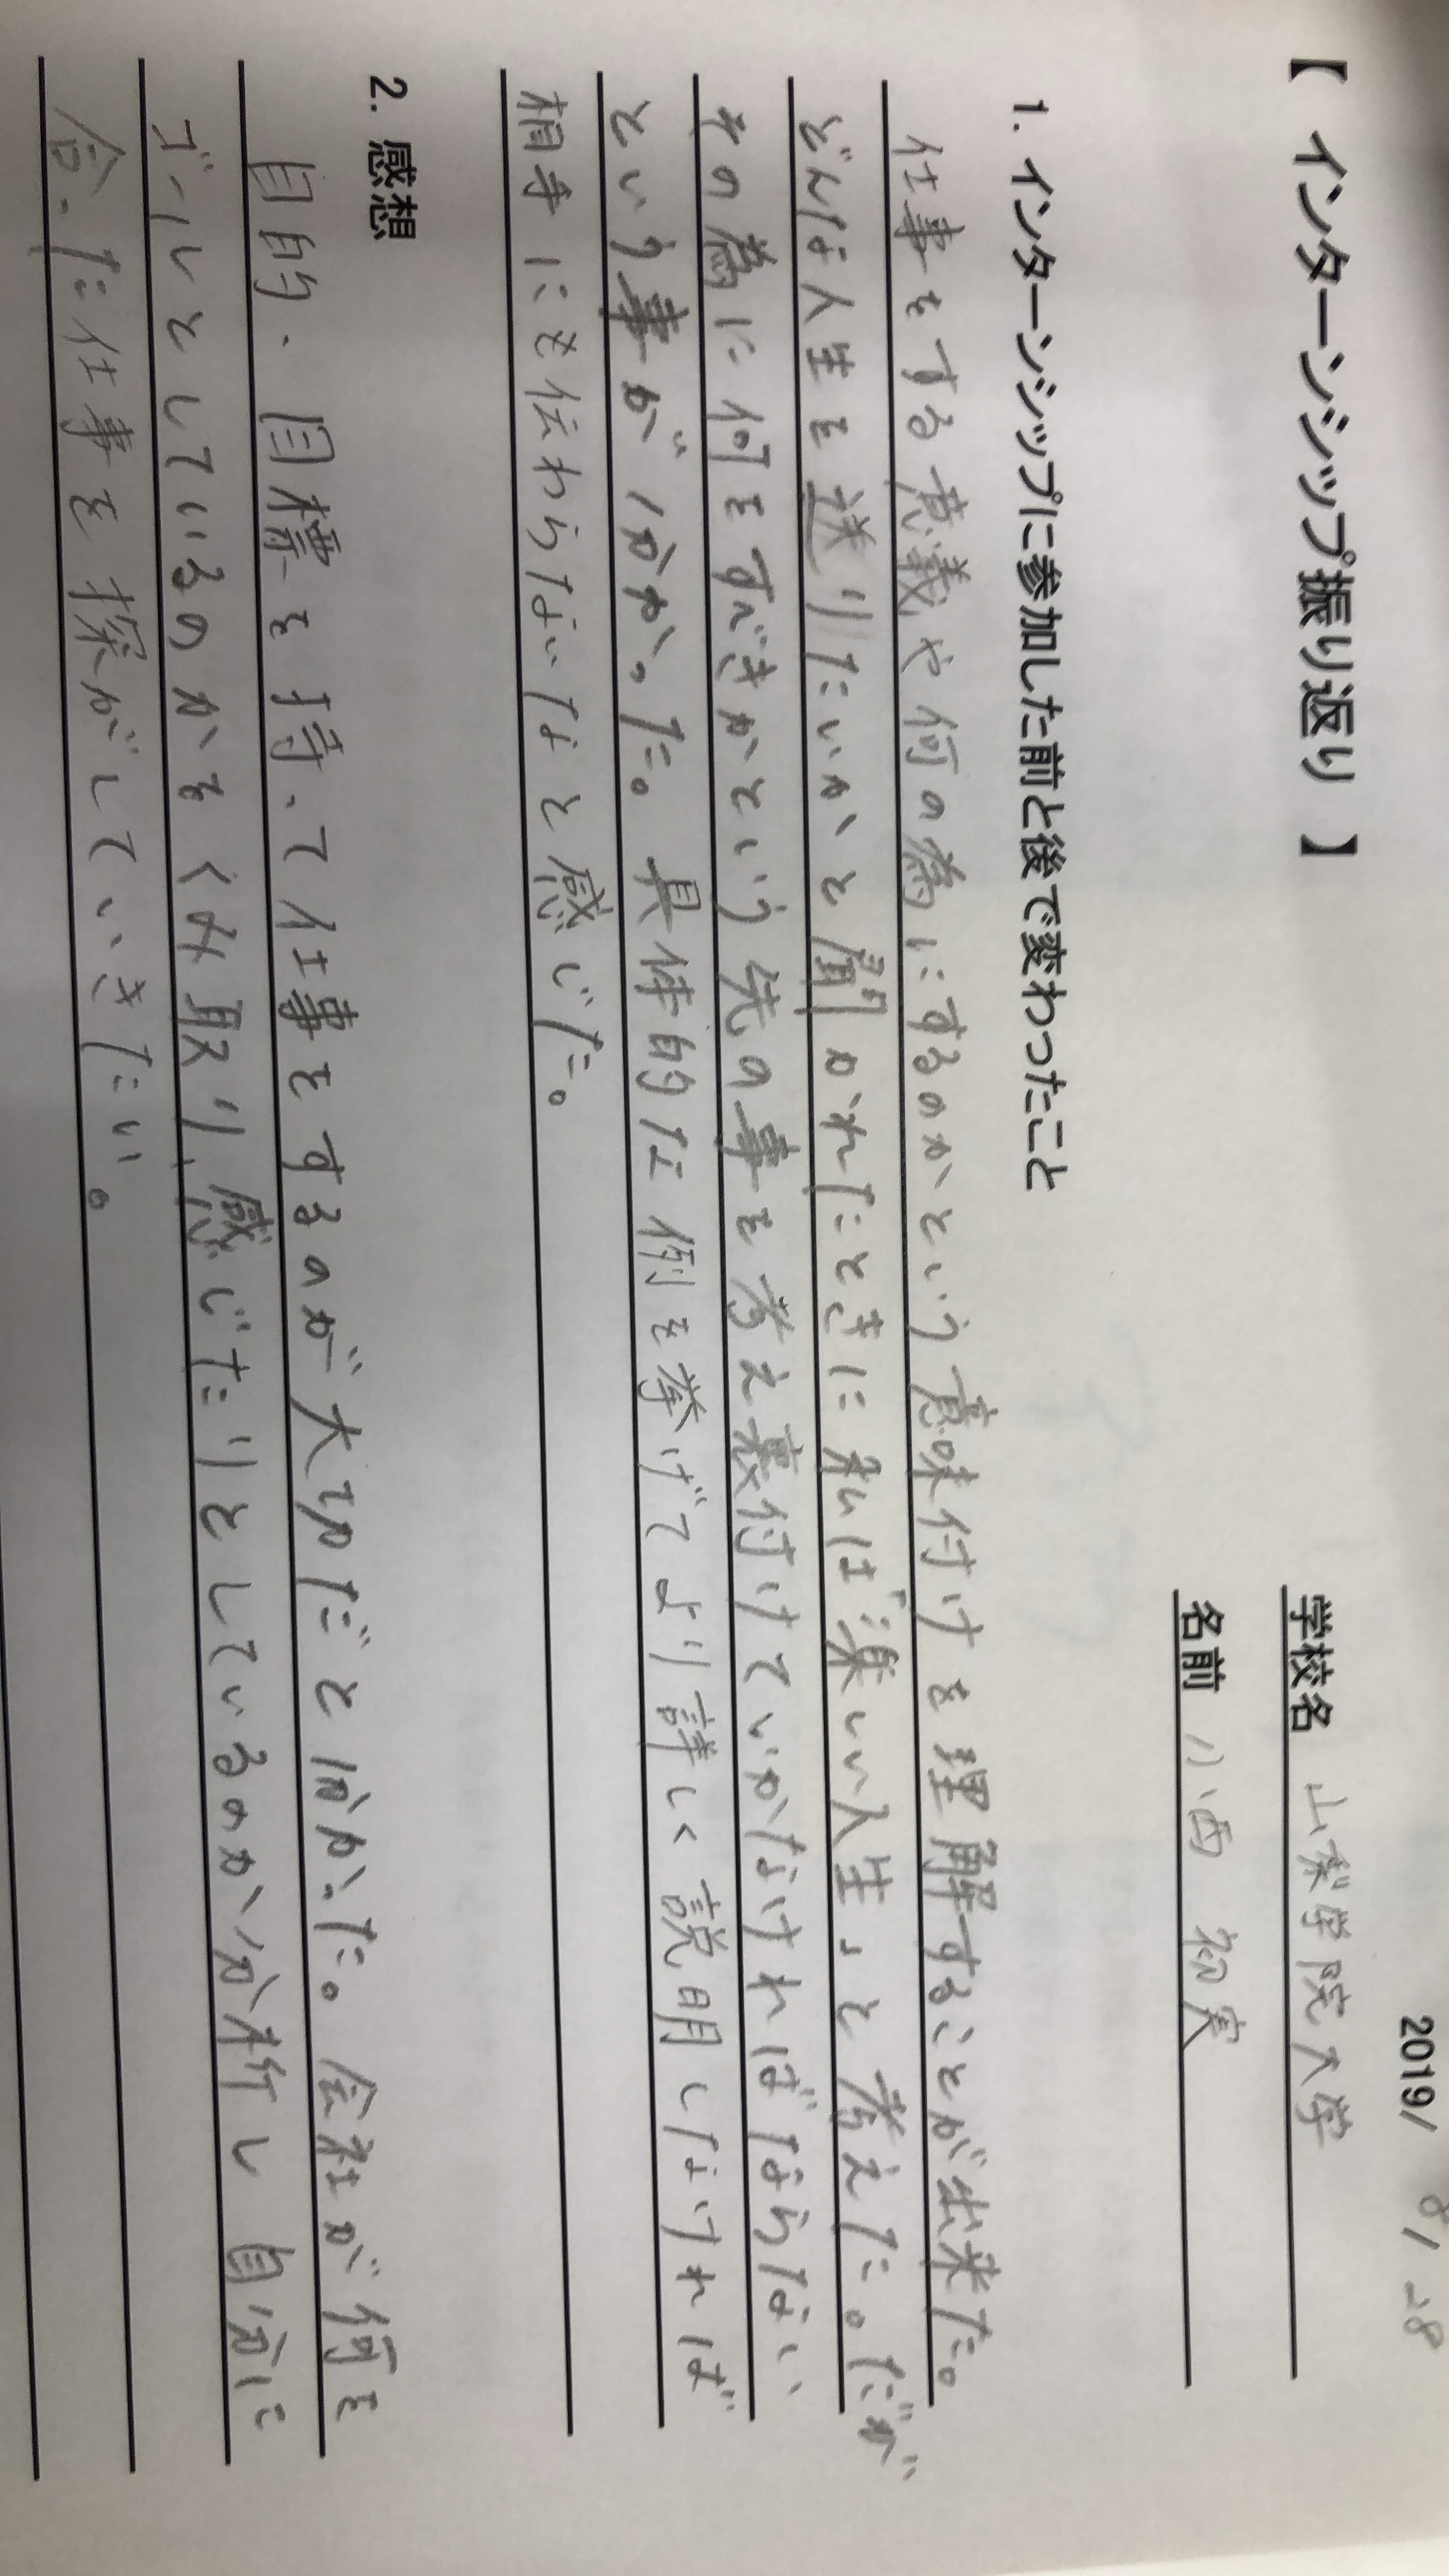 2019/ 8/ 28
【 インターンシップ振り返り 】
学校名 山梨学院大学
名前 小西 初実
1. インターンシップに参加した前と後で変わったこと
仕事をする意義や何の為にするのかという意味付けを理解することが出来た。
どんな人生を送りたいかと聞かれたときに私は「楽しい人生」と考えた。だが
その為に何をすべきかという先の事を考え裏付けていかなければならない
という事が分かった。具体的な例を挙げてより詳しく説明しなければ
相手にも伝わらないなと感じた。
2. 感想
目的、目標を持って仕事をするのが大切だと分かった。会社が何を
ゴールとしているのかをくみ取り、感じたりとしているのか分析し自分に
合った仕事を探がしていきたい。